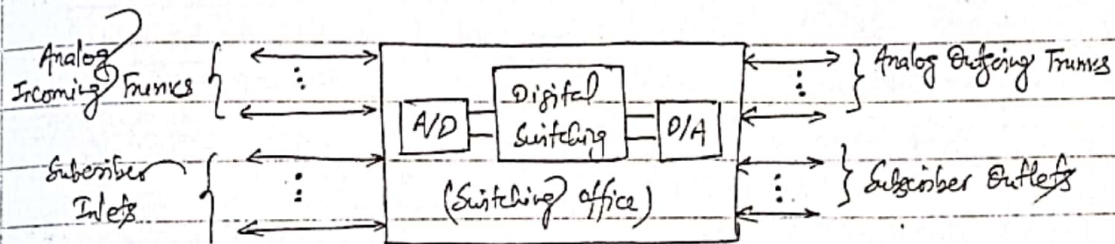 Analog
Incoming Trunks
Subscriber
Inlets
A/D
Digital
Switching
D/A
(Switching office)
Analog Outgoing Trunks
Subscriber Outlets